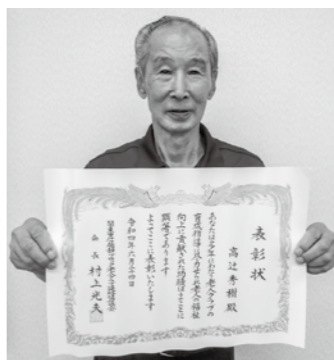 表彰状
高辻秀樹殿
あなたは多年にわたり老人クラブの
育成指導に尽力せられ老人の福祉
向上に貢献された功績はまことに
顕著であります
よってここに表彰いたします
令和四年六月二十四日
会長 村上光夫